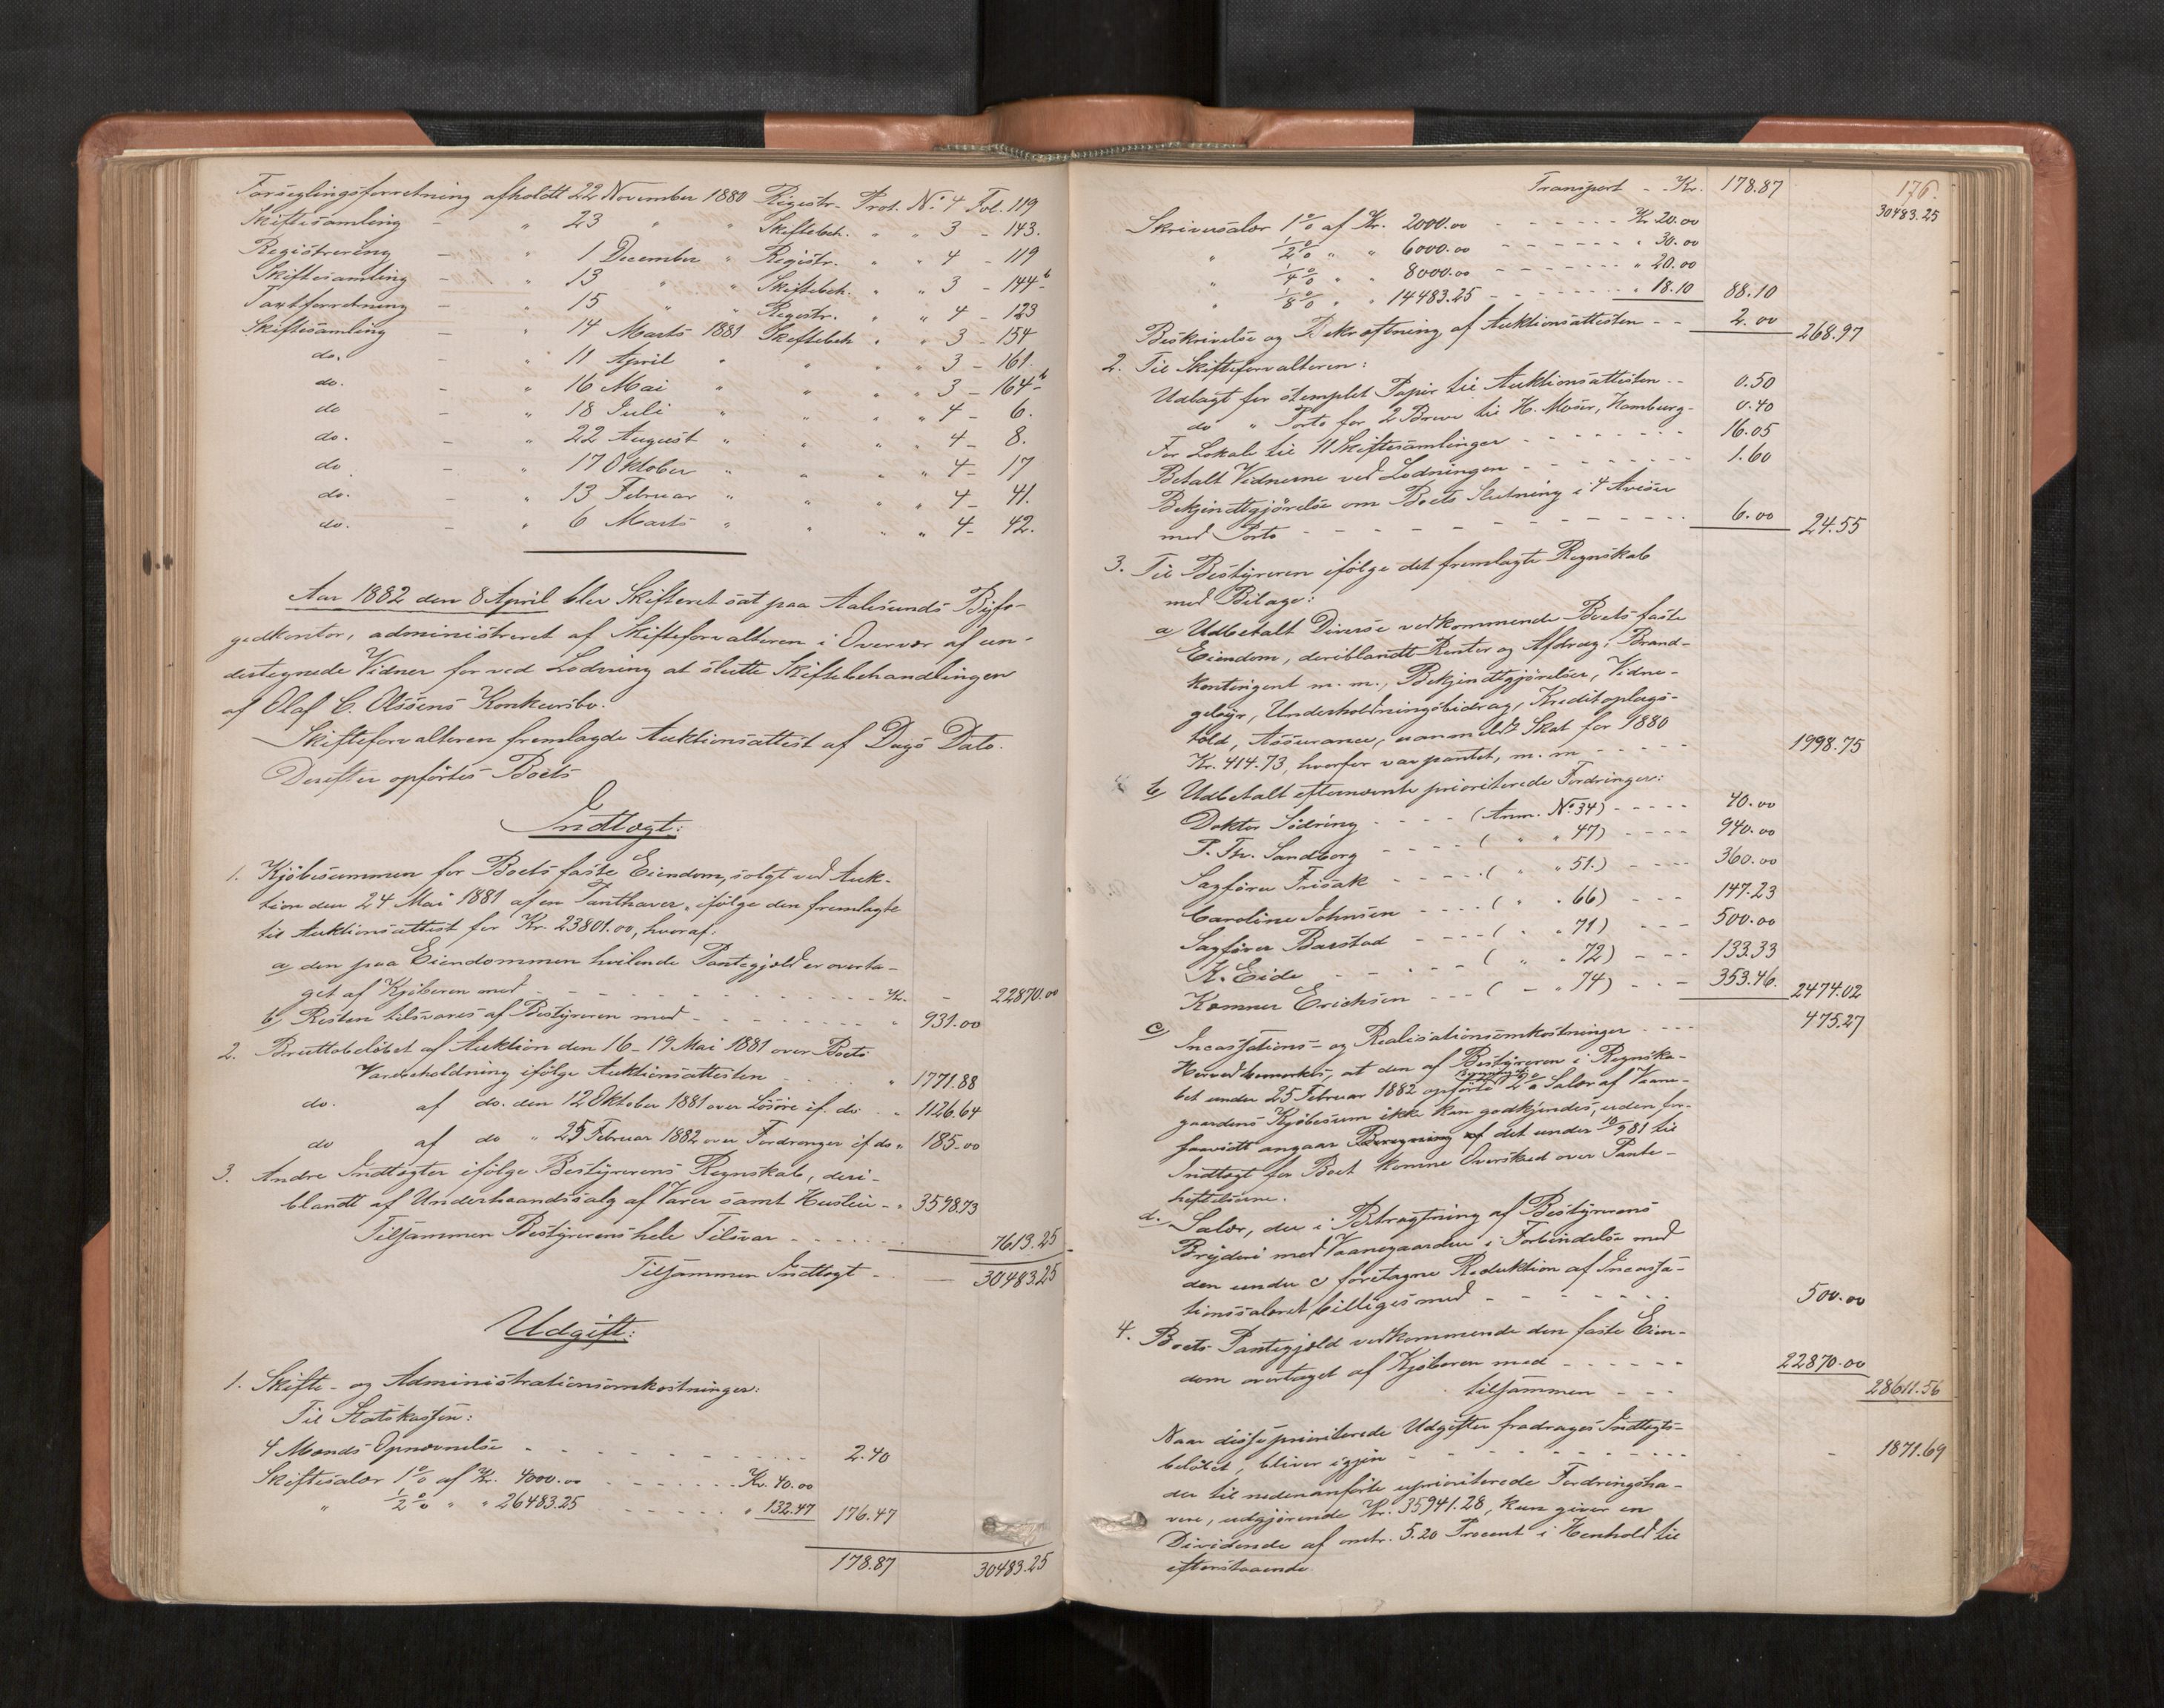 Forseglingsforretning afholdt 22 November 1880 Registr. Prot. No. 4 Fol. 119
Skiftesamling - " 23 " " Skiftebeh. " " 3 - 143.
Registrering - " 1 December " Registr. " " 4 - 119
Skiftesamling - " 13 " " Skiftebeh. " " 3 - 144b
Taxtforretning - " 15 " " Registr. " " 4 - 123
Skiftesamling - " 14 Marts 1881 Skiftebeh " " 3 - 154
do. - " 11 April " " " " 3 - 161.
do. - " 16 Mai " " " " 3 - 164b
do - " 18 Juli " " " " 4 - 6.
do. - " 22 August " " " " 4 - 8.
do - " 17 Oktober " " " " 4 - 17
do. - " 13 Februar " " " " 4 - 41.
do. - " 6 Marts " " " " 4 - 42.
Aar 1882 den 8 April blev Skifteret sat paa Aalesunds Byfo-
gedkontor, administreret af Skifteforvalteren i Overvær af un-
dertegnede Vidner for ved Lodning at slutte Skiftebehandlingen
af Olaf C. Olssens Konkursbo.
Skifteforvalteren fremlagde Auktionsattest af Dags Dato.
Derefter opførtes Boets
Indtægt:
1. Kjøbesummen for Boets faste Eiendom, solgt ved Auk-
tion den 24 Mai 1881 af en Panthaver, ifølge den fremlagte
til Auktionsattest for Kr. 23801.00, hvoraf:
a, den paa Eiendommen hvilende Pantegjæld er overta-
get af Kjøberen med - - - Kr. - 22870.00
b, Resten tilsvares af Bestyreren med - - - " 931.00
2. Bruttobeløbet af Auktion den 16-19 Mai 1881 over Boets
Varebeholdning ifølge Auktionsattesten " 1771.88
do. af do. den 12 Oktober 1881 over Løsøre if. do. " 1126.64
do af do " 25 Februar 1882 over Fordringer if do " 185.00
3. Andre Indtægter ifølge Bestyrerens Regnskab, deri-
blandt af Underhaandssalg af Varer samt Husleie - " 3598.73
Tilsammen Bestyrerens hele Tilsvar - - - 7613.25
Tilsammen Indtægt - - 30483.25
Udgift:
1. Skifte- og Administrationsomkostninger:
Til Statskassen:
4 Mænds Opnævnelse - - - 2.40
Skiftesalær 1 0/0 af Kr. 4000.00 - - - Kr. 40.00
" 1/2 0/0 " " 26483.25 - - - " 132.47 176.47
178.87 30483.25
176.
Transport - Kr. 178.87 30483.25
Skriversalær 1 0/0 af Kr. 2000.00 - - - Kr 20.00
" 1/2 0/0 " " 6000.00 - - - " 30.00
" 1/4 0/0 " " 8000.00 - - - " 20.00
" 1/8 0/0 " " 14483.25 - - - " 18.10 88.10
Beskrivelse og Bekræftning af Auktionsattesten - - 2.00 268.97
2. Til Skifteforvalteren:
Udlagt for stemplet Papir til Auktionsattesten - - 0.50
do " Porto for 2 Breve til H. Moser, Hamburg - 0.40
For Lokale til 11 Skiftesamlinger - - - 16.05
Betalt Vidnerne ved Lodningen - - - 1.60
Bekjendtgjørelse om Boets Slutning i 4 Aviser
med Porto - - - 6.00 24.55
3. Til Bestyreren ifølge det fremlagte Regnskab
med Bilage:
a, Udbetalt Diverse vedkommende Boets faste
Eiendom, deriblandt Renter og Afdrag, Brand-
kontingent m. m., Bekjendtgjørelser, Vidne-
gebyr, Underholdningsbidrag, Kreditoplags-
told, Assurance, uanmeldt Skat for 1880
Kr. 414.73, hvorfor var pantet, m. m - - - 1998.75
b, Udbetalt efternævnte prioriterede Fordringer:
Doktor Södring - - - (Anm. No. 34) - - - 40.00
P. Th. Sandborg - - - ( " " 47) - - - 940.00
Sagfører Frisak - - - ( " " 51.) - - - 360.00
Caroline Johnsen - - - ( " " 66) - - - 147.23
Sagfører Barstad - - - ( " " 71) - - - 500.00
K. Eide - - - ( " " 72) - - - 133.33
Kæmner Erichsen - - - ( - " 74) - - - 353.46. 2474.02
c, Incassations- og Realisationsomkostninger - - - 475.27
Herved bemærkes, at den af Bestyreren i Regnska-
bet under 25 Februar 1882 opførte 2 0/0 Salær af Vaane-
gaardens Kjøbesum ikke kan godkjendes, uden for-
saavidt angaar Beregning af det under 10/9 81 til
Indtægt for Boet komne Overskud over Pante-
heftelserne.
d. Salær, der i Betragtning af Bestyrerens
Bryderi med Vaanegaarden i Forbindelse med
den under c foretagne Reduktion af Incassa-
tionssalæret billiges med - - - 500.00
4. Boets Pantegjæld vedkommende den faste Eien-
dom overtaget af Kjøberen med - - - 22870.00
tilsammen - - - 28611.56
Naar disse prioriterede Udgifter fradrages Indtægts-
beløbet, bliver igjen - - - 1871.69
der til nedenanførte uprioriterede Fordringsha-
vere, udgjørende Kr. 35941.28, kun giver en
Dividende af omtr. 5.20 Procent i Henhold til
efterstaaende